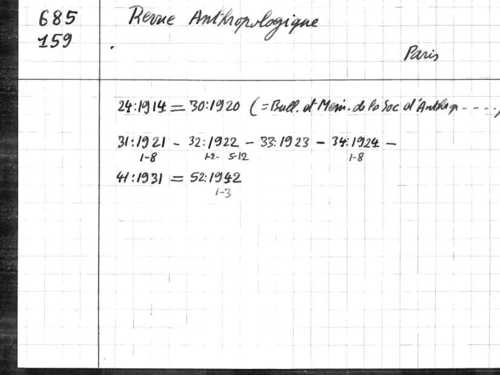 685 Revue Anthropologique
159
Paris
24:1914 = 30:1920 (= Bull. et Mem. de la Soc d'Anthrop. ----,
31:1921 - 32:1922 - 33:1923 - 34:1924 -
1-8 1-2- 5-12 1-8
41:1931 = 52:1942
1-3